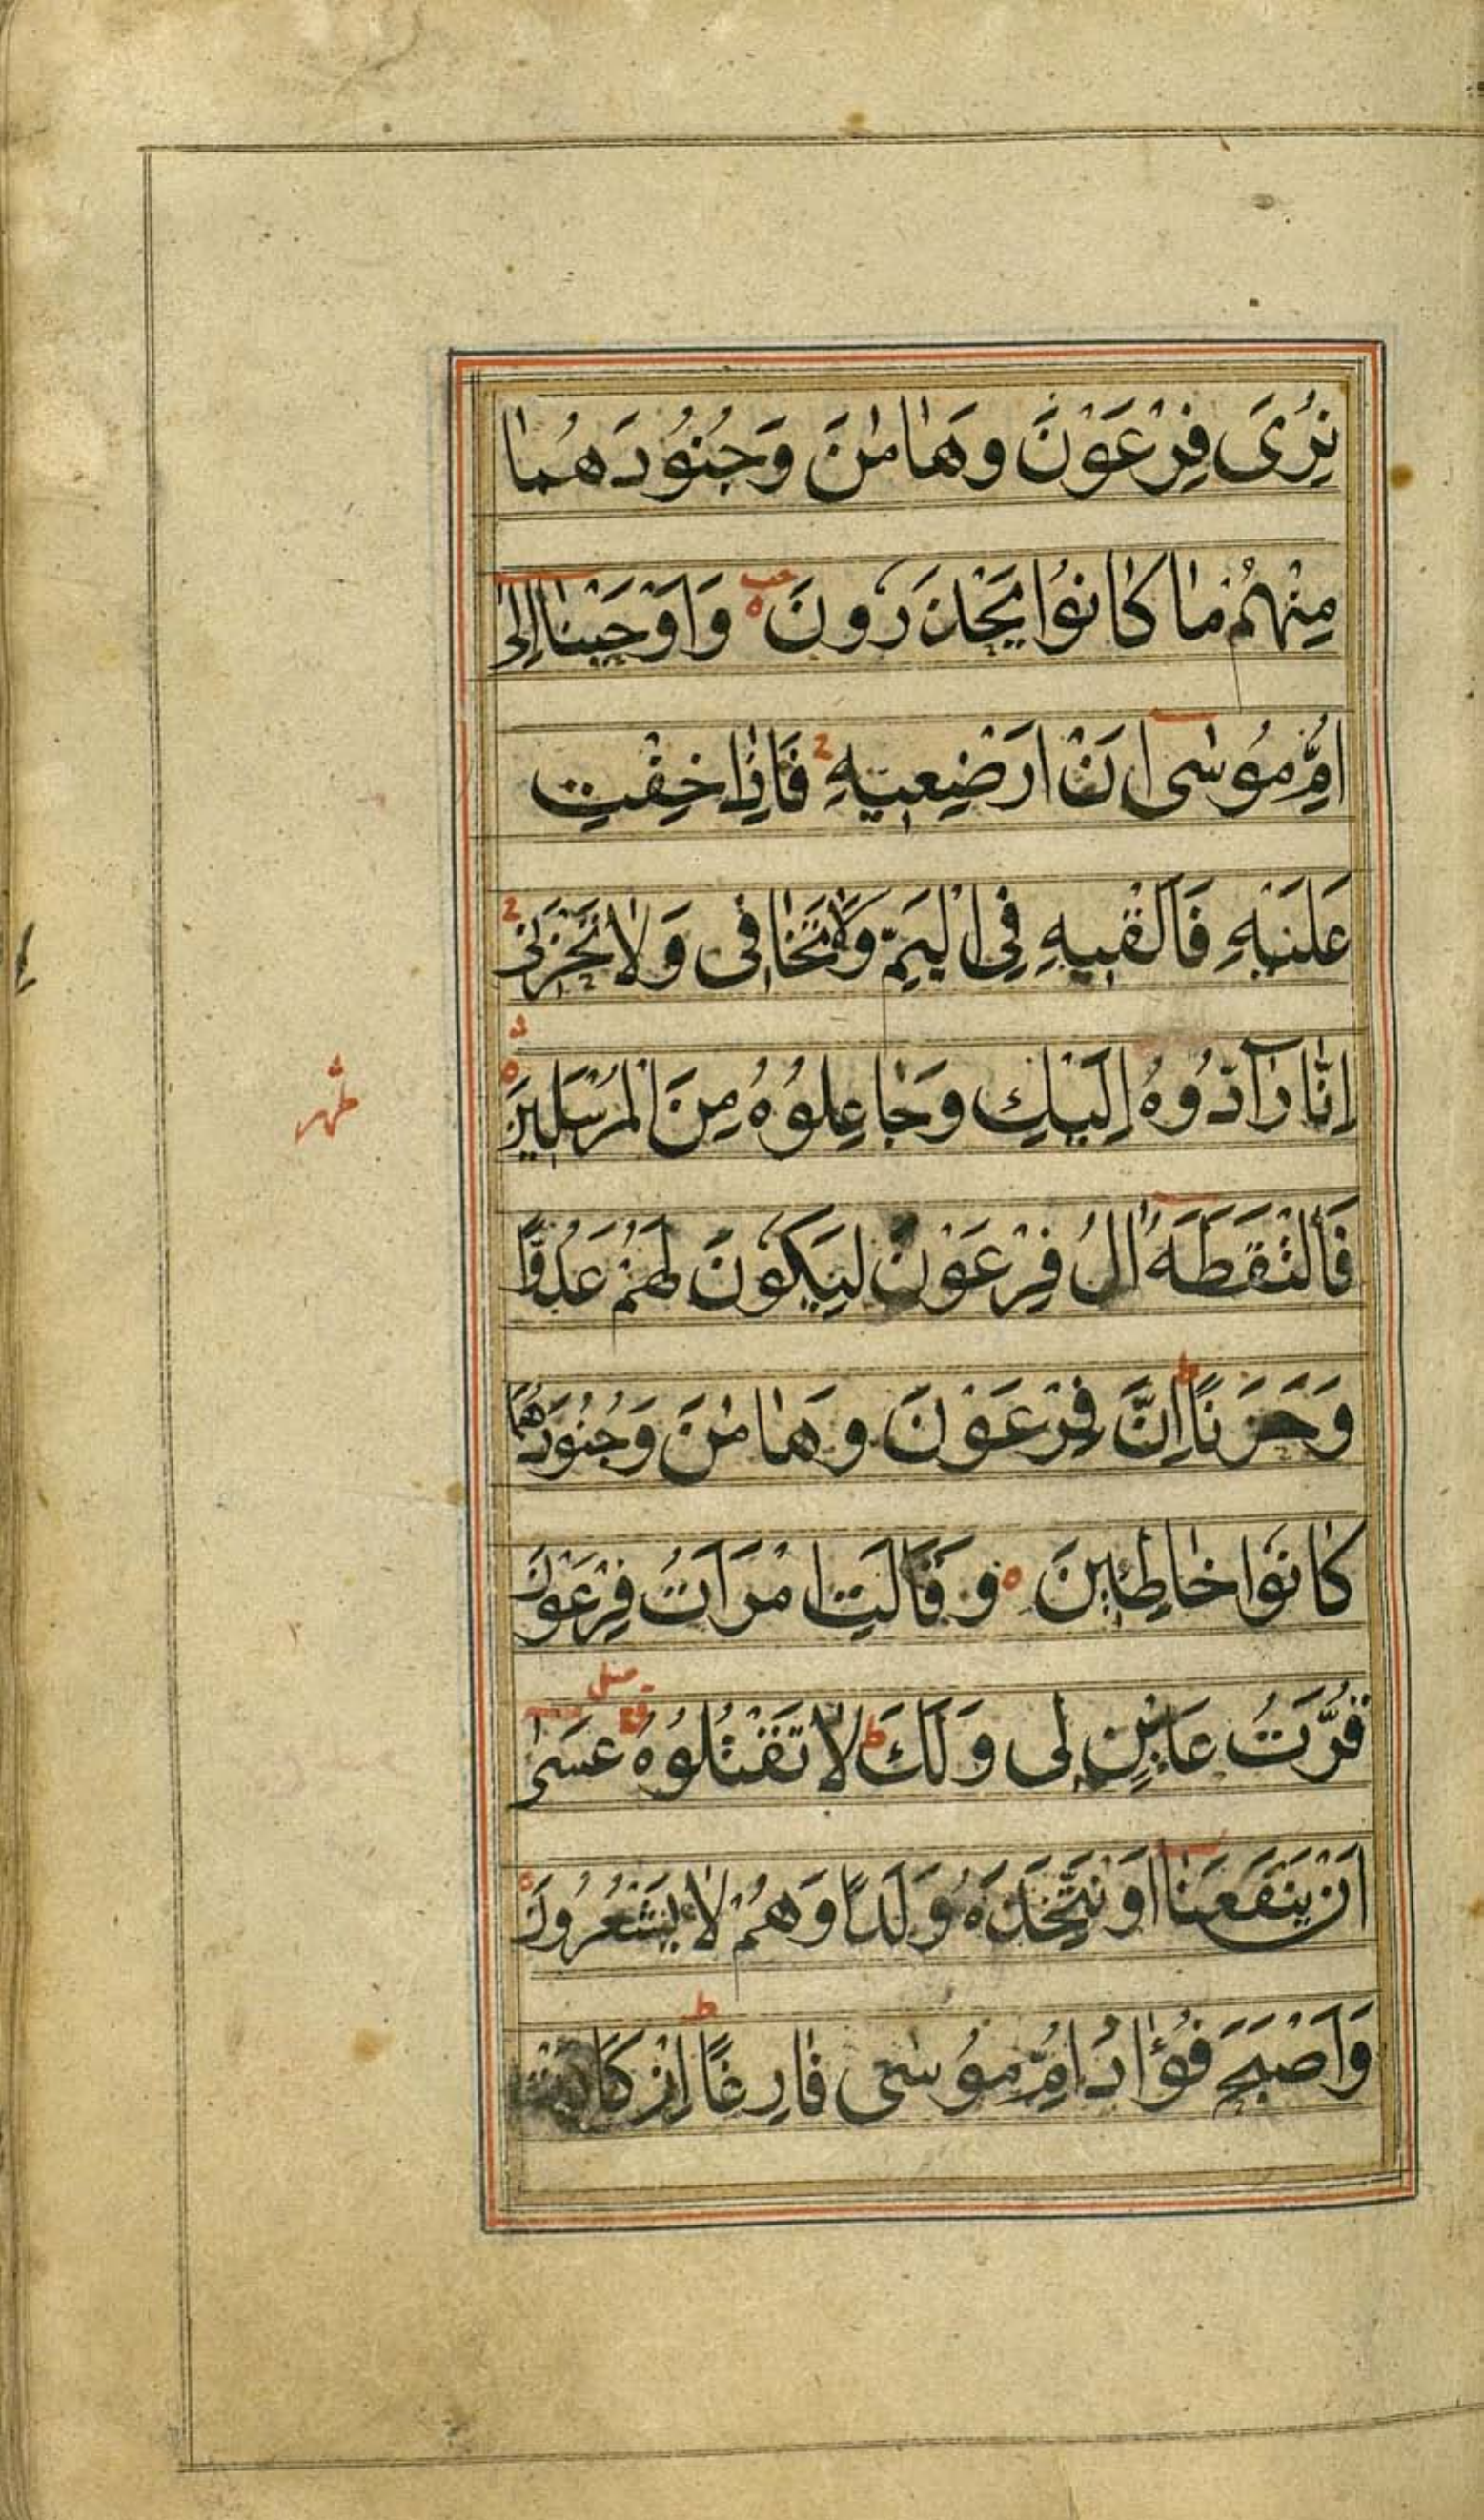 نُرِىَ فِرْعَوْنَ وَهَامٰنَ وَجُنُودَهُمَا
مِنْهُمْ مَا كَانُوا يَحْذَرُونَ وَاَوْحَيْنَا اِلٰى
اُمِّ مُوسٰى اَنْ اَرْضِعِيهِ فَاِذَا خِفْتِ
عَلَيْهِ فَاَلْقِيهِ فِى الْيَمِّ وَلَا تَخَافِى وَلَا تَحْزَنِى
اِنَّا رَآدُّوهُ اِلَيْكِ وَجَاعِلُوهُ مِنَ الْمُرْسَلِينَ
ظهر
فَالْتَقَطَهُ اٰلُ فِرْعَوْنَ لِيَكُونَ لَهُمْ عَدُوًّا
وَحَزَنًا اِنَّ فِرْعَوْنَ وَهَامٰنَ وَجُنُودَهُمَا
كَانُوا خَاطِئِينَ وَقَالَتِ امْرَاَتُ فِرْعَوْنَ
قُرَّتُ عَيْنٍ لِى وَلَكَ لَا تَقْتُلُوهُ عَسٰى
اَنْ يَنْفَعَنَا اَوْ نَتَّخِذَهُ وَلَدًا وَهُمْ لَا يَشْعُرُونَ
وَاَصْبَحَ فُؤَادُ اُمِّ مُوسٰى فَارِغًا اِنْ كَادَتْ